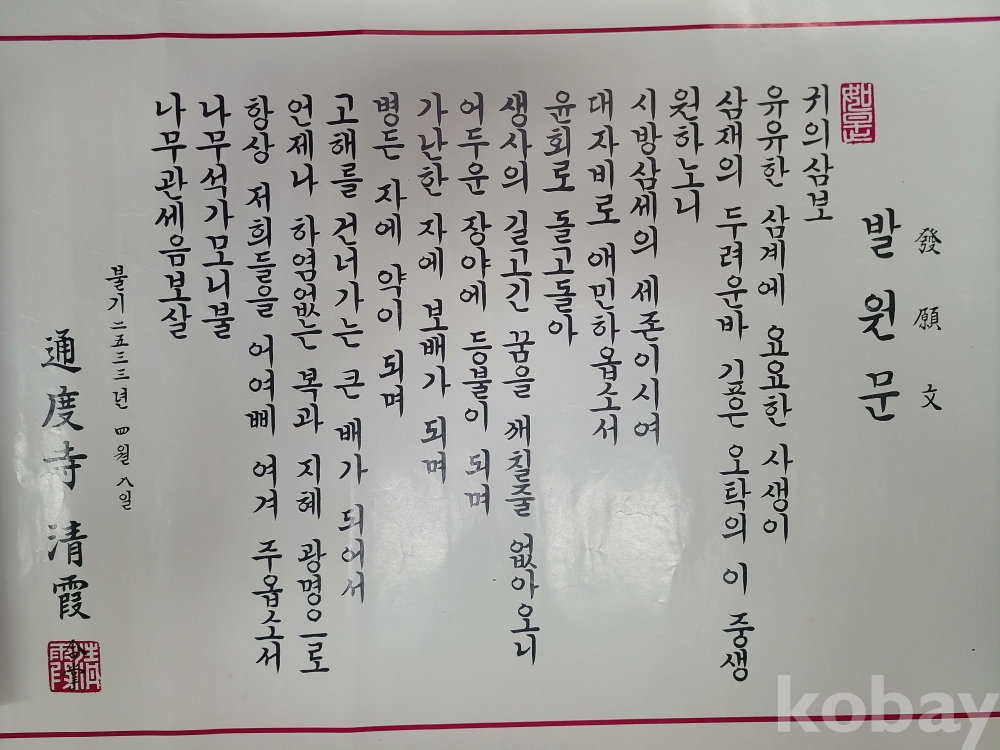 發願文
발원문
귀의삼보
유유한 삼계에 요요한 사생이
삼재의 두려운바 깊은 오탁의 이 중생
원하노니
시방삼세의 세존이시여
대자비로 애민하옵소서
윤회로 돌고돌아
생사의 길고긴 꿈을 깨칠줄 없아오니
어두운 장야에 등불이 되며
가난한 자에 보배가 되며
병든 자에 약이 되며
고해를 건너가는 큰 배가 되어서
언제나 하염없는 복과 지혜 광명으로
항상 저희들을 어여삐 여겨 주옵소서
나무석가모니불
나무관세음보살
불기 二五三三년 四월 八일
通度寺 清霞
kobay